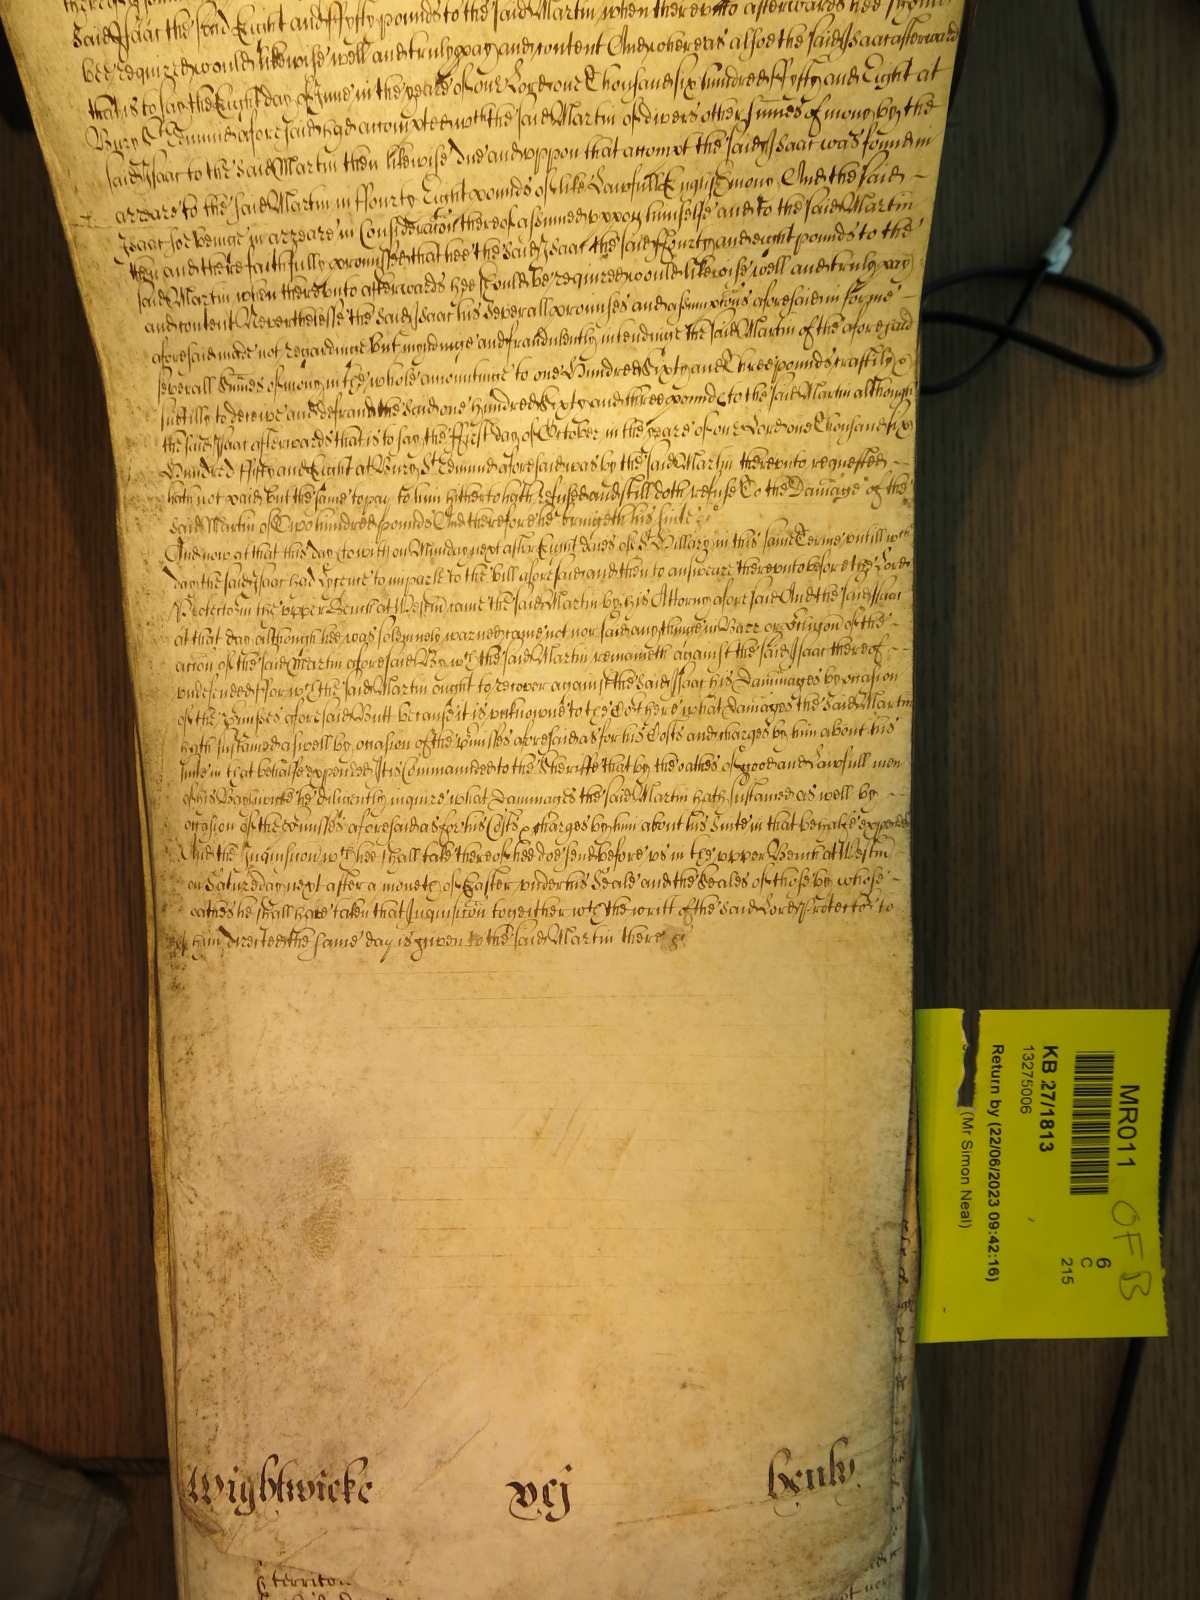 said Isaac the said Eight and ffyfty pounds to the said Martin when therevnto afterwards hee should
bee required would likewise well and truly pay and content And whereas alsoe the said Isaac afterward
that is to say the Eight day of June in the yeare of our Lord one Thousand six hundred ffyfty and Eight at
Bury St Edmund aforesaid had accompted with the said Martin of divers other summes of mony by the
said Isaac to the said Martin then likewise due and vppon that accompt the said Isaac was found in
arreare to the said Martin in ffourty Eight pounds of like Lawfull English mony And the said
Isaac soe beinge in arreare in Consideration thereof assumed vppon himselfe and to the said Martin
then and there faithfully promised that hee the said Isaac the said ffourty and eight pounds to the
said Martin when therevnto afterwards hee should be required would likewise well and truly pay
and content Neverthelesse the said Isaac his severall promises and assumptions aforesaid in forme
aforesaid made not regardinge but myndinge and fraudulently intendinge the said Martin of the aforesaid
severall summes of mony in the whole amountinge to one Hundred Sixty and Three pounds craftily
suttilly to deceive and defraud the said one hundred Sixty and three pounds to the said Martin although
the said Isaac afterwards that is to say the ffirst day of October in the yeare of our Lord one Thousand six
Hundred ffifty and Eight at Bury St Edmund aforesaid was by the said Martin therevnto requested
hath not paid but the same to pay to him hitherto hath refused and still doth refuse To the Damage of the
said Martin of Two hundred pounds And therefore he bringeth his suite &c
And now at that this day (to wit) on Munday next after Eight dayes of St Hillary in this same Terme vntill wch
day the said Isaac had Lycence to imparle to the bill aforesaid and then to answeare therevnto before the Lord
Protector in the vpper Bench at Westm came the said Martin by his Attorny aforesaid And the said Isaac
at that day although hee was solempnely warned came not nor said any thinge in Barr or of the
action of the said Martin aforesaid By wch the said Martin remaineth against the said Isaac thereof
vndefended ffor wch the said Martin ought to recover against the said Isaac his Dammages by occasion
of the premises aforesaid Butt because it is vnknowne to the Cort here what damages the said Martin
hath sustained aswell by occasion of the premisses aforesaid as for his Costs and charges by him about his
suite in that behalfe expended It is Commanded to the Sheriffe that by the oathes of good and Lawfull men
of his Baylywicke he diligently inquire what Dammages the said Martin hath sustained as well by
occasion of the premisses aforesaid as for his Costs & charges by him about his Suite in that behalfe expended
And the Inquisicon wch hee shall take thereof hee doe send before vs in the vpper Bench at Westm
on Saturday next after a moneth of Easter vnder his Seale and the Seales of those by whose
oathes he shall have taken that Inquisicon togeither wth the writt of the said Lord Protector to
him directed the same day is given to the said Martin there &c
Wightwicke
vcj
henly
territor
MR011
OF B
KB 27/1813
13275006
Return by (22/06/2023 09:42:16)
(Mr Simon Neal)
6
C
215